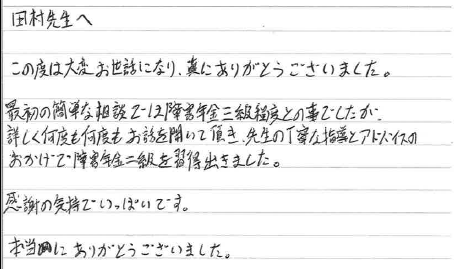 田村先生へ
この度は大変お世話になり、真にありがとうございました。
最初の簡単な相談では障害年金三級程度との事でしたが、
詳しく何度も何度もお話を聞いて頂き、先生の丁寧な指導とアドバイスの
おかげで障害年金二級を習得出きました。
感謝の気持でいっぱいです。
本当にありがとうございました。